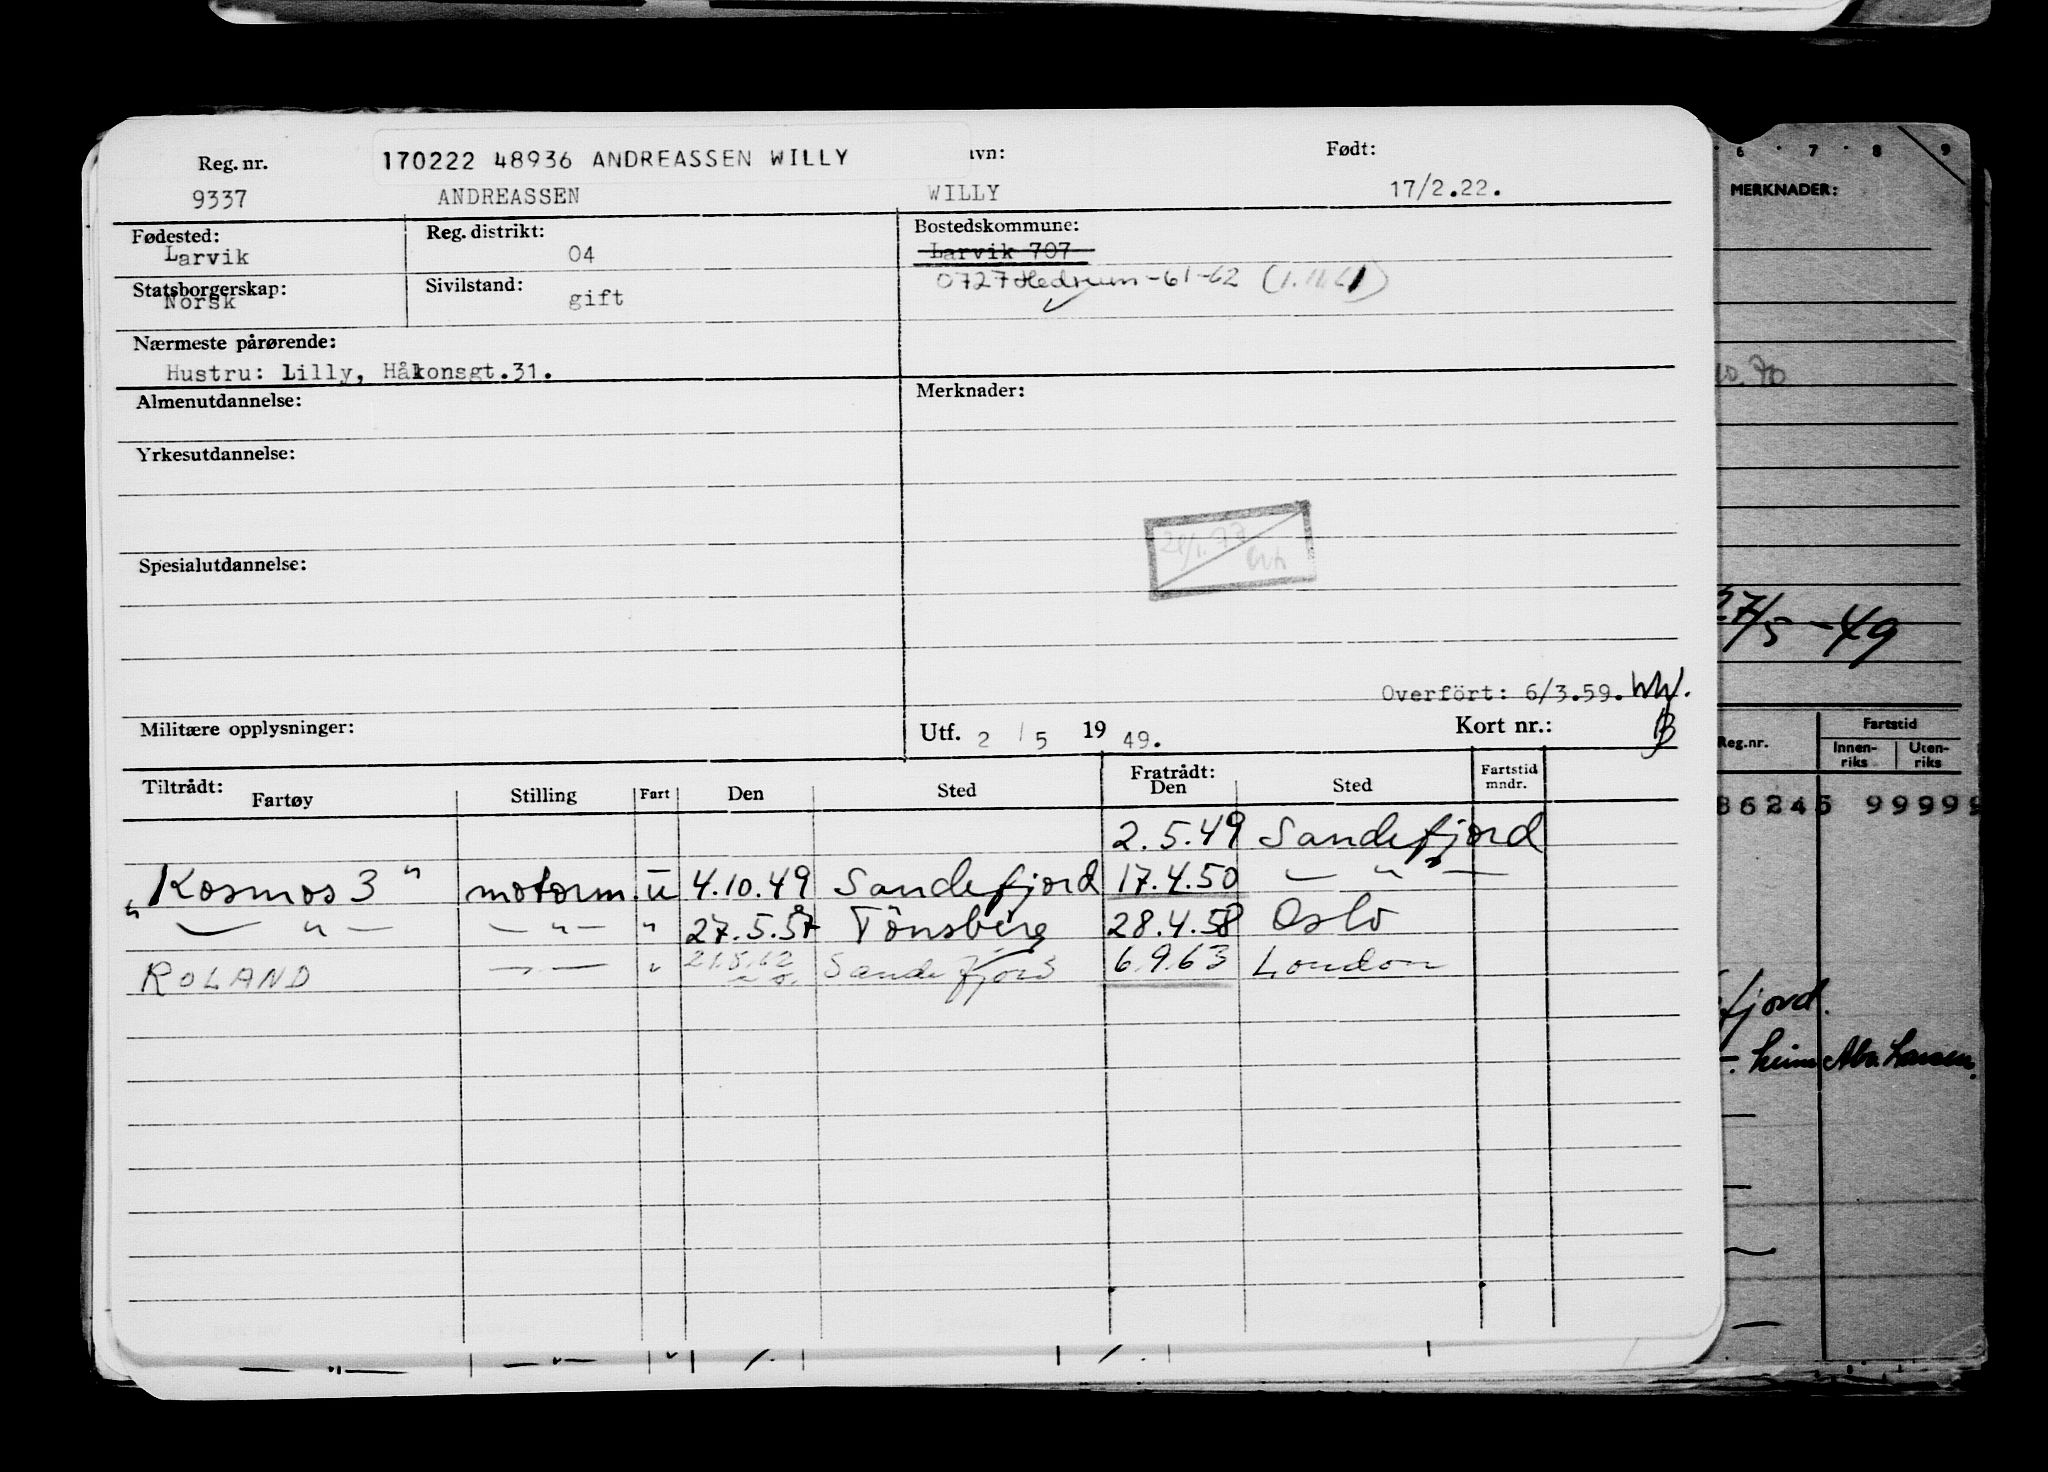 170222 48936 ANDREASSEN WILLY
Reg. nr. avn: Født:
9337 ANDREASSEN WILLY 17/2.22.
Fødested: Reg. distrikt: Bostedskommune:
Larvik 04 Larvik 707
Statsborgerskap: Sivilstand: 0727 Hedrum -61-62
Norsk gift
Nærmeste pårørende:
Hustru: Lilly, Håkonsgt.31.
Almenutdannelse: Merknader:
Yrkesutdannelse:
Spesialutdannelse:
Overført: 6/3.59.
Militære opplysninger: Utf. 2 / 5 19 49. Kort nr.:
Tiltrådt: Fratrådt: Fartstid
Fartøy Stilling Fart Den Sted Den Sted mndr.
2.5.49 Sandefjord
"Kosmos 3" motorm. u 4.10.49 Sandefjord 17.4.50 — " —
— " — — " — " 27.5.57 Tönsberg 28.4.58 Oslo
ROLAND — " — " Sandefjord 6.9.63 London
6 7 8 9
MERKNADER:
10.70
27/5-49
Reg.nr. Fartstid
Innen-riks Uten-riks
86245 99999
fjord.